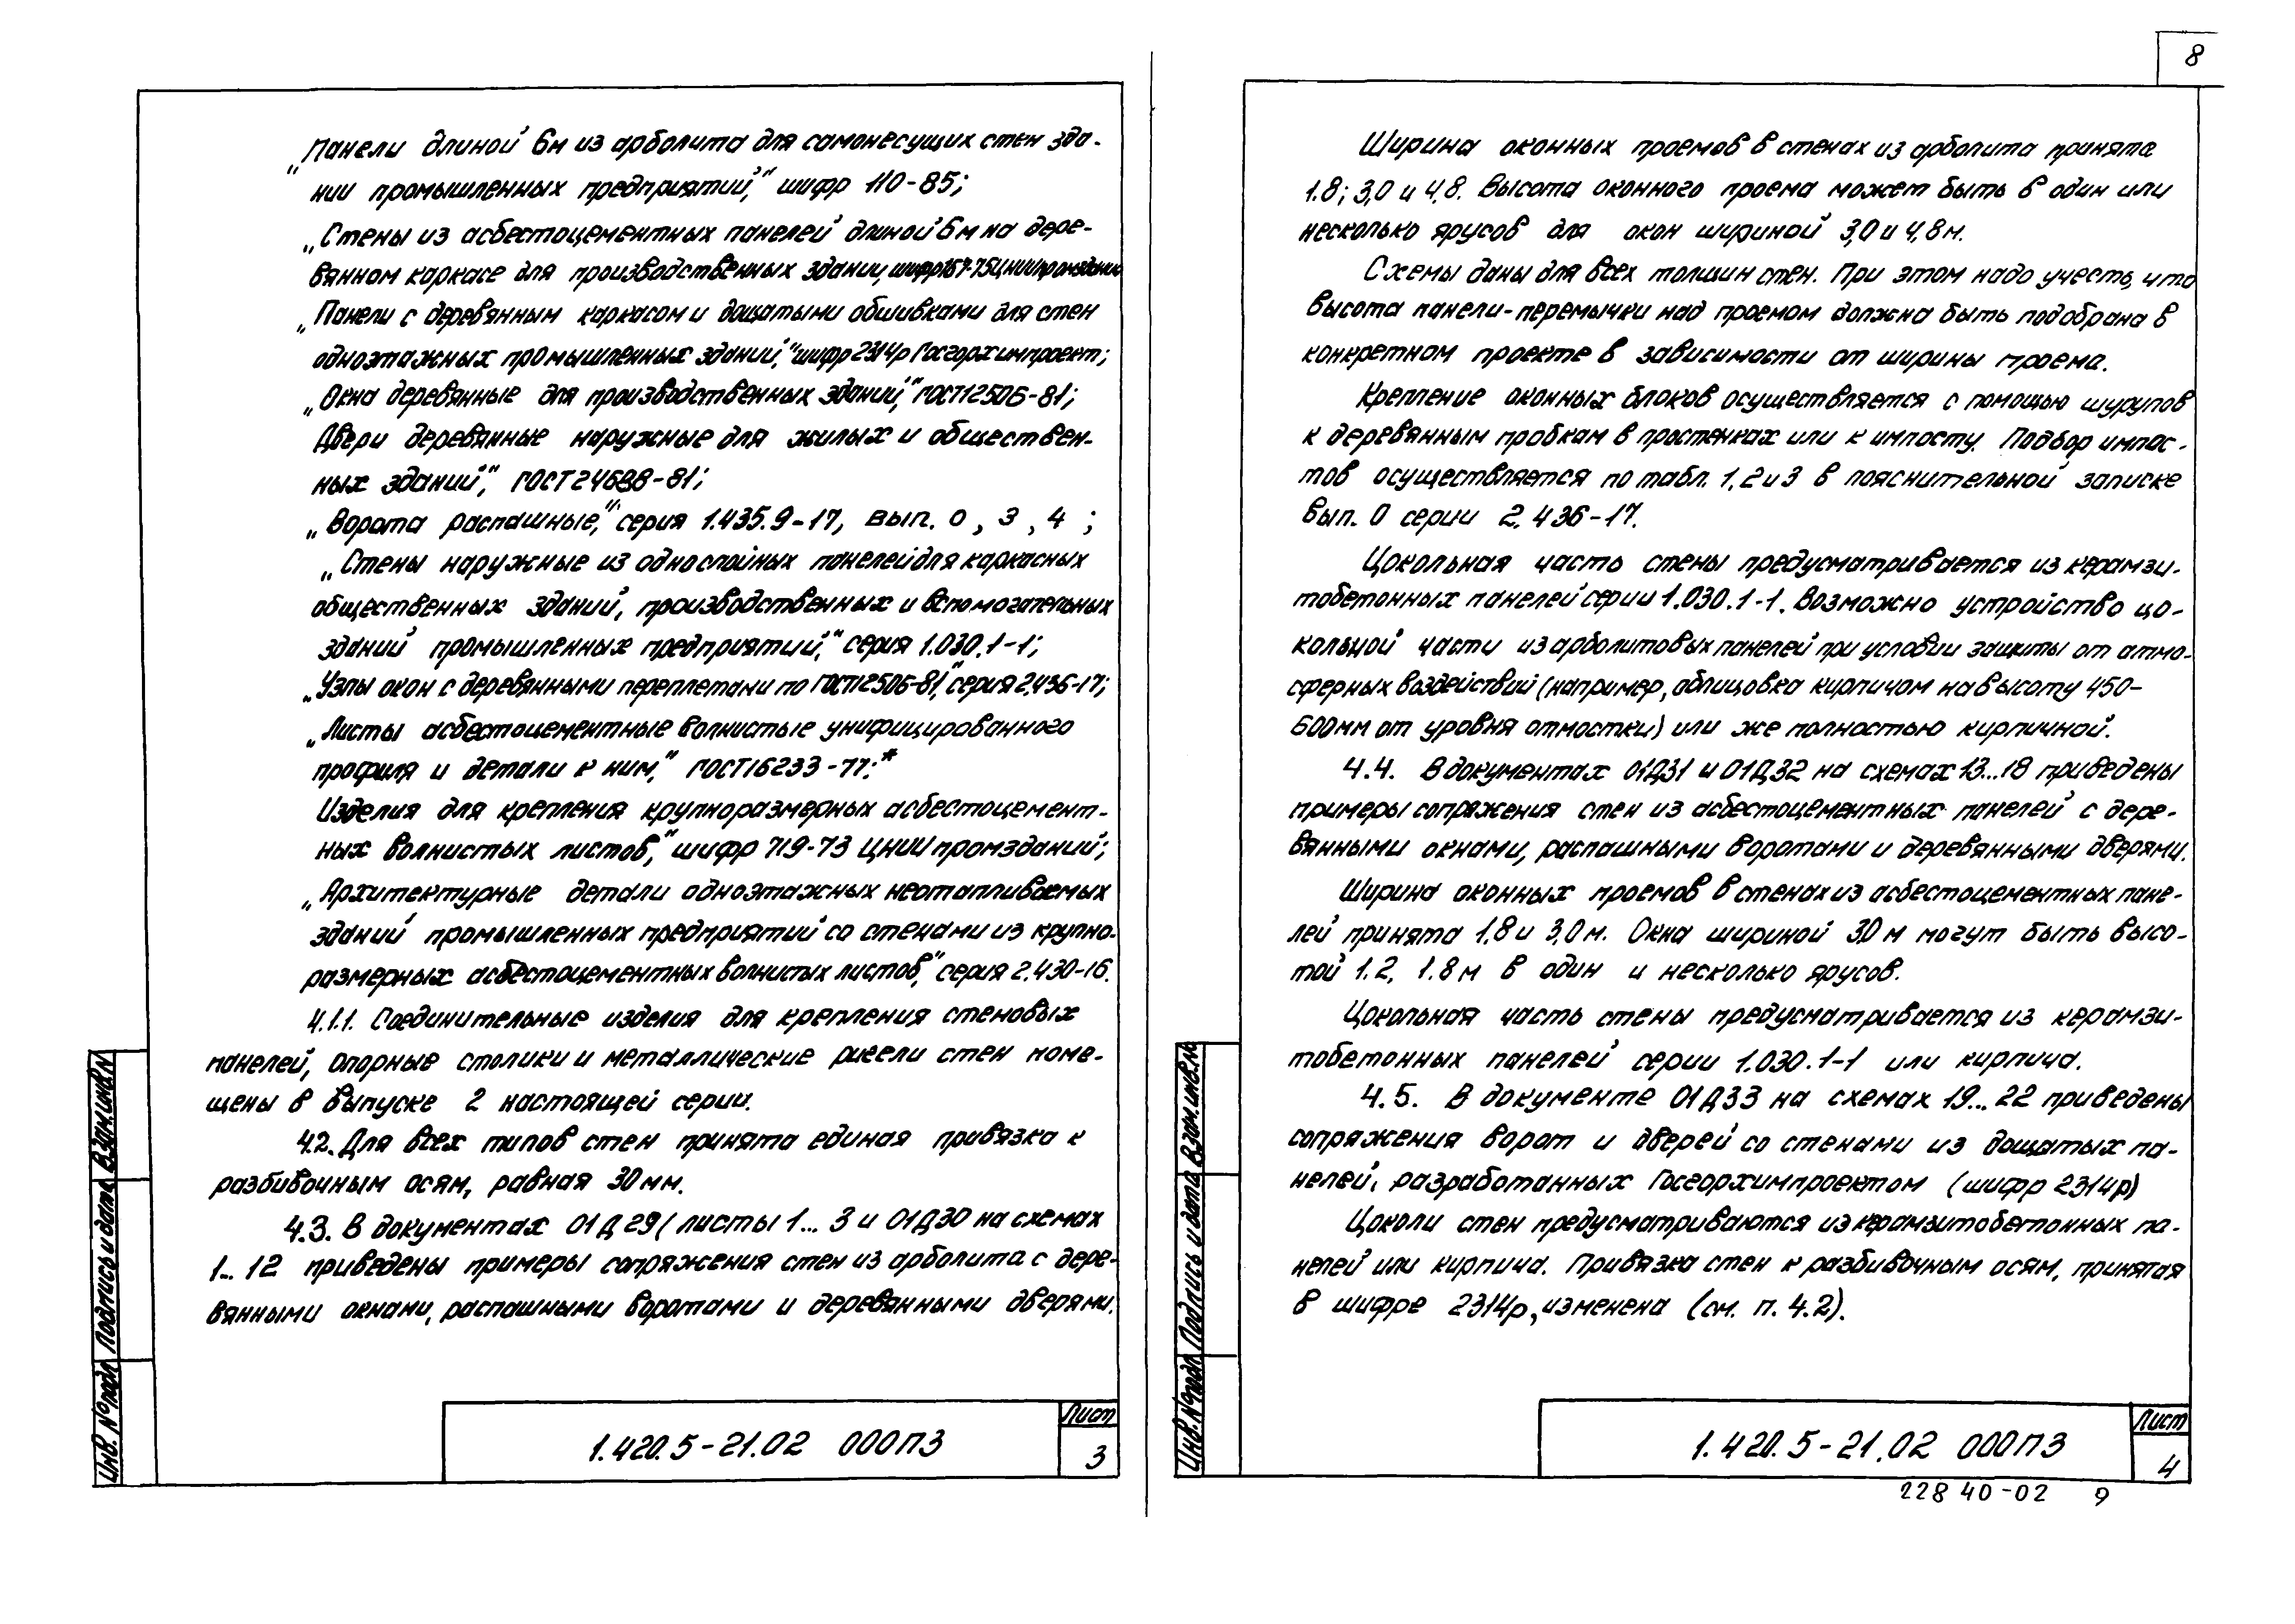 „Панели длиной 6м из арболита для самонесущих стен зда-
нии промышленных предприятий," шифр 110-85;
„Стены из асбестоцементных панелей длиной 6м на дере-
вянном каркасе для производственных зданий, шифр 157-75 ЦНИИпромзданий
„Панели с деревянным каркасом и дощатыми обшивками для стен
одноэтажных промышленных зданий," шифр 2314р Госгорхимпроект;
„Окна деревянные для производственных зданий," ГОСТ 12506-81;
Двери деревянные наружные для жилых и обществен-
ных зданий," ГОСТ 24698-81;
„Ворота распашные," серия 1.435.9-17, вып. 0, 3, 4;
„Стены наружные из однослойных панелей для каркасных
общественных зданий, производственных и вспомогательных
зданий промышленных предприятий," серия 1.030.1-1;
„Узлы окон с деревянными переплетами по ГОСТ12506-81," серия 2.436-17;
„Листы асбестоцементные волнистые унифицированного
профиля и детали к ним," ГОСТ16233-77;*
Изделия для крепления крупноразмерных асбестоцемент-
ных волнистых листов," шифр 719-73 ЦНИИ промзданий;
„Архитектурные детали одноэтажных неотапливаемых
зданий промышленных предприятий со стенами из крупно-
размерных асбестоцементных волнистых листов," серия 2.430-16.
4.1.1. Соединительные изделия для крепления стеновых
панелей, опорные столики и металлические ригели стен поме-
щены в выпуске 2 настоящей серии.
4.2. Для всех типов стен принята единая привязка к
разбивочным осям, равная 30мм.
4.3. В документах 01Д29 (листы 1... 3 и 01Д30 на схемах
1... 12 приведены примеры сопряжения стен из арболита с дере-
вянными окнами, распашными воротами и деревянными дверями.
Взам.инв.№
Подпись и дата
Инв. № подл
1.420.5-21.02 000ПЗ
Лист
3
8
Ширина оконных проемов в стенах из арболита принята
1.8; 3,0 и 4,8. Высота оконного проема может быть в один или
несколько ярусов для окон шириной 3,0 и 4,8м.
Схемы даны для всех толщин стен. При этом надо учесть, что
высота панели-перемычки над проемом должна быть подобрана в
конкретном проекте в зависимости от ширины проема.
Крепление оконных блоков осуществляется с помощью шурупов
к деревянным пробкам в простенках или к импосту. Подбор импос-
тов осуществляется по табл. 1, 2 и 3 в пояснительной записке
вып. 0 серии 2.436-17.
Цокольная часть стены предусматривается из керамзи-
тобетонных панелей серии 1.030.1-1. Возможно устройство цо-
кольной части из арболитовых панелей при условии защиты от атмо-
сферных воздействий (например, облицовка кирпичом на высоту 450-
600мм от уровня отмостки) или же полностью кирпичной.
4.4. В документах 01Д31 и 01Д32 на схемах 13...18 приведены
примеры сопряжения стен из асбестоцементных панелей с дере-
вянными окнами, распашными воротами и деревянными дверями.
Ширина оконных проемов в стенах из асбестоцементных пане-
лей принята 1,8 и 3,0м. Окна шириной 3,0 м могут быть высо-
той 1.2, 1.8 м в один и несколько ярусов.
Цокольная часть стены предусматривается из керамзи-
тобетонных панелей серии 1.030.1-1 или кирпича.
4.5. В документе 01Д33 на схемах 19... 22 приведены
сопряжения ворот и дверей со стенами из дощатых па-
нелей, разработанных Госгорхимпроектом (шифр 2314р)
Цоколи стен предусматриваются из керамзитобетонных па-
нелей или кирпича. Привязка стен к разбивочным осям, принятая
в шифре 2314р, изменена (см. п. 4.2).
Взам.инв.№
Подпись и дата
Инв. № подл
1.420.5-21.02 000ПЗ
Лист
4
22840-02 9